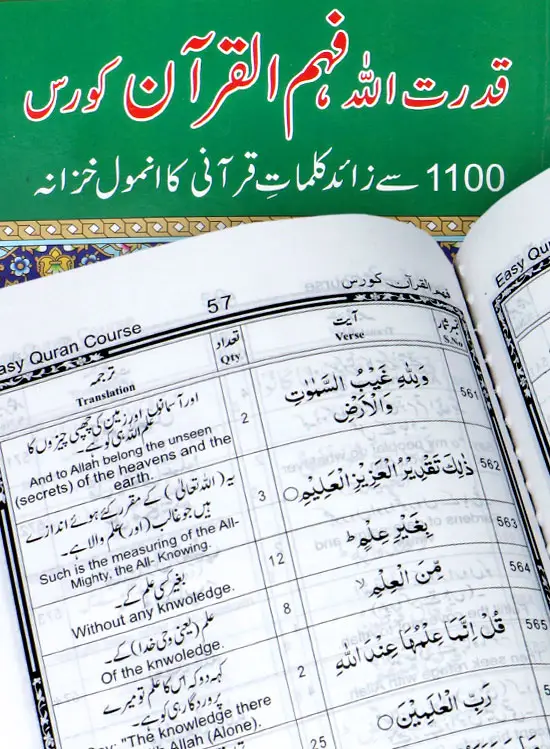 قدرت اللہ فہم القرآن کورس
1100 سے زائد کلماتِ قرآنی کا انمول خزانہ
Easy Quran Course
57
فہم القرآن کورس
Easy Quran
ترجمہ
Translation
تعداد
Qty
آیت
Verse
نمبر شمار
S.No
اور آسمانوں اور زمین کی چھپی چیزوں کا
علم اللہ ہی کو ہے۔
And to Allah belong the unseen
(secrets) of the heavens and the
earth.
2
وَلِلّٰهِ غَيْبُ السَّمٰوٰتِ
وَالْاَرْضِ
561
یہ (اللہ تعالیٰ) کے مقرر کئے ہوئے اندازے
ہیں جو غالب (اور) علم والا ہے۔
Such is the measuring of the All-
Mighty, the All- Knowing.
3
ذٰلِكَ تَقْدِيْرُ الْعَزِيْزِ الْعَلِيْمِ
562
بغیر کسی علم کے۔
Without any knwoledge.
12
بِغَيْرِ عِلْمٍ ط
563
علم (یعنی وحی خدا) کے۔
Of the knwoledge.
8
مِنَ الْعِلْمِ لا
564
کہہ دو کہ اس کا علم تو میرے
پروردگار ہی کو ہے۔
"The knowledge there
Allah (Alone).
2
قُلْ اِنَّمَا عِلْمُهَا عِنْدَ اللّٰهِ
565
25
رَبِّ الْعٰلَمِيْنَ